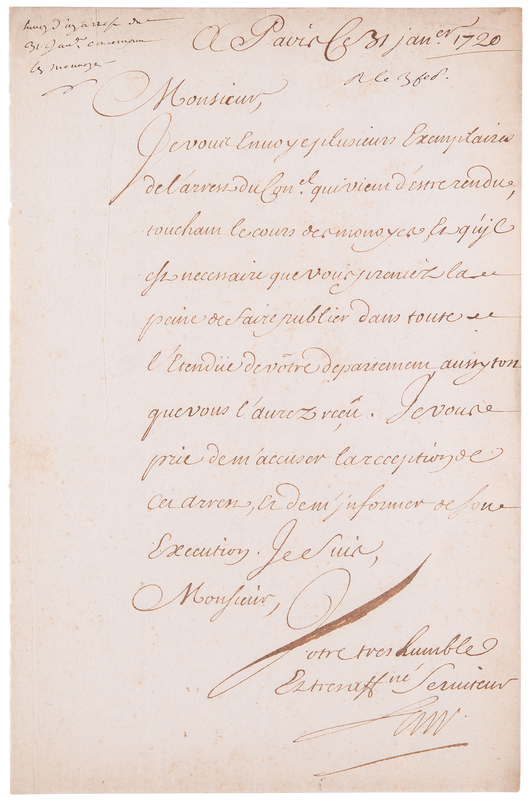 envoy d'un arrest du
31. Janer. concernant
les monnoyes
A Paris Ce 31 janer. 1720
R le 3 feb.
Monsieur,
Je vous Envoye plusieurs Exemplaires
de l'arrest du Conel. qui vient d'estre rendu,
touchant le cours des monoyes, Et qu'jl
est necessaire que vous preniéz la
peine de faire publier dans toute
l'Etendüe de vôtre departement aussy tost
que vous l'aurez reçû. Je vous
prie de m'accuser la reception de
cet arrest, Et de m'jnformer de son
Execution. Je Suis,
Monsieur,
Votre tres humble
Et tres affné Serviteur
Law.